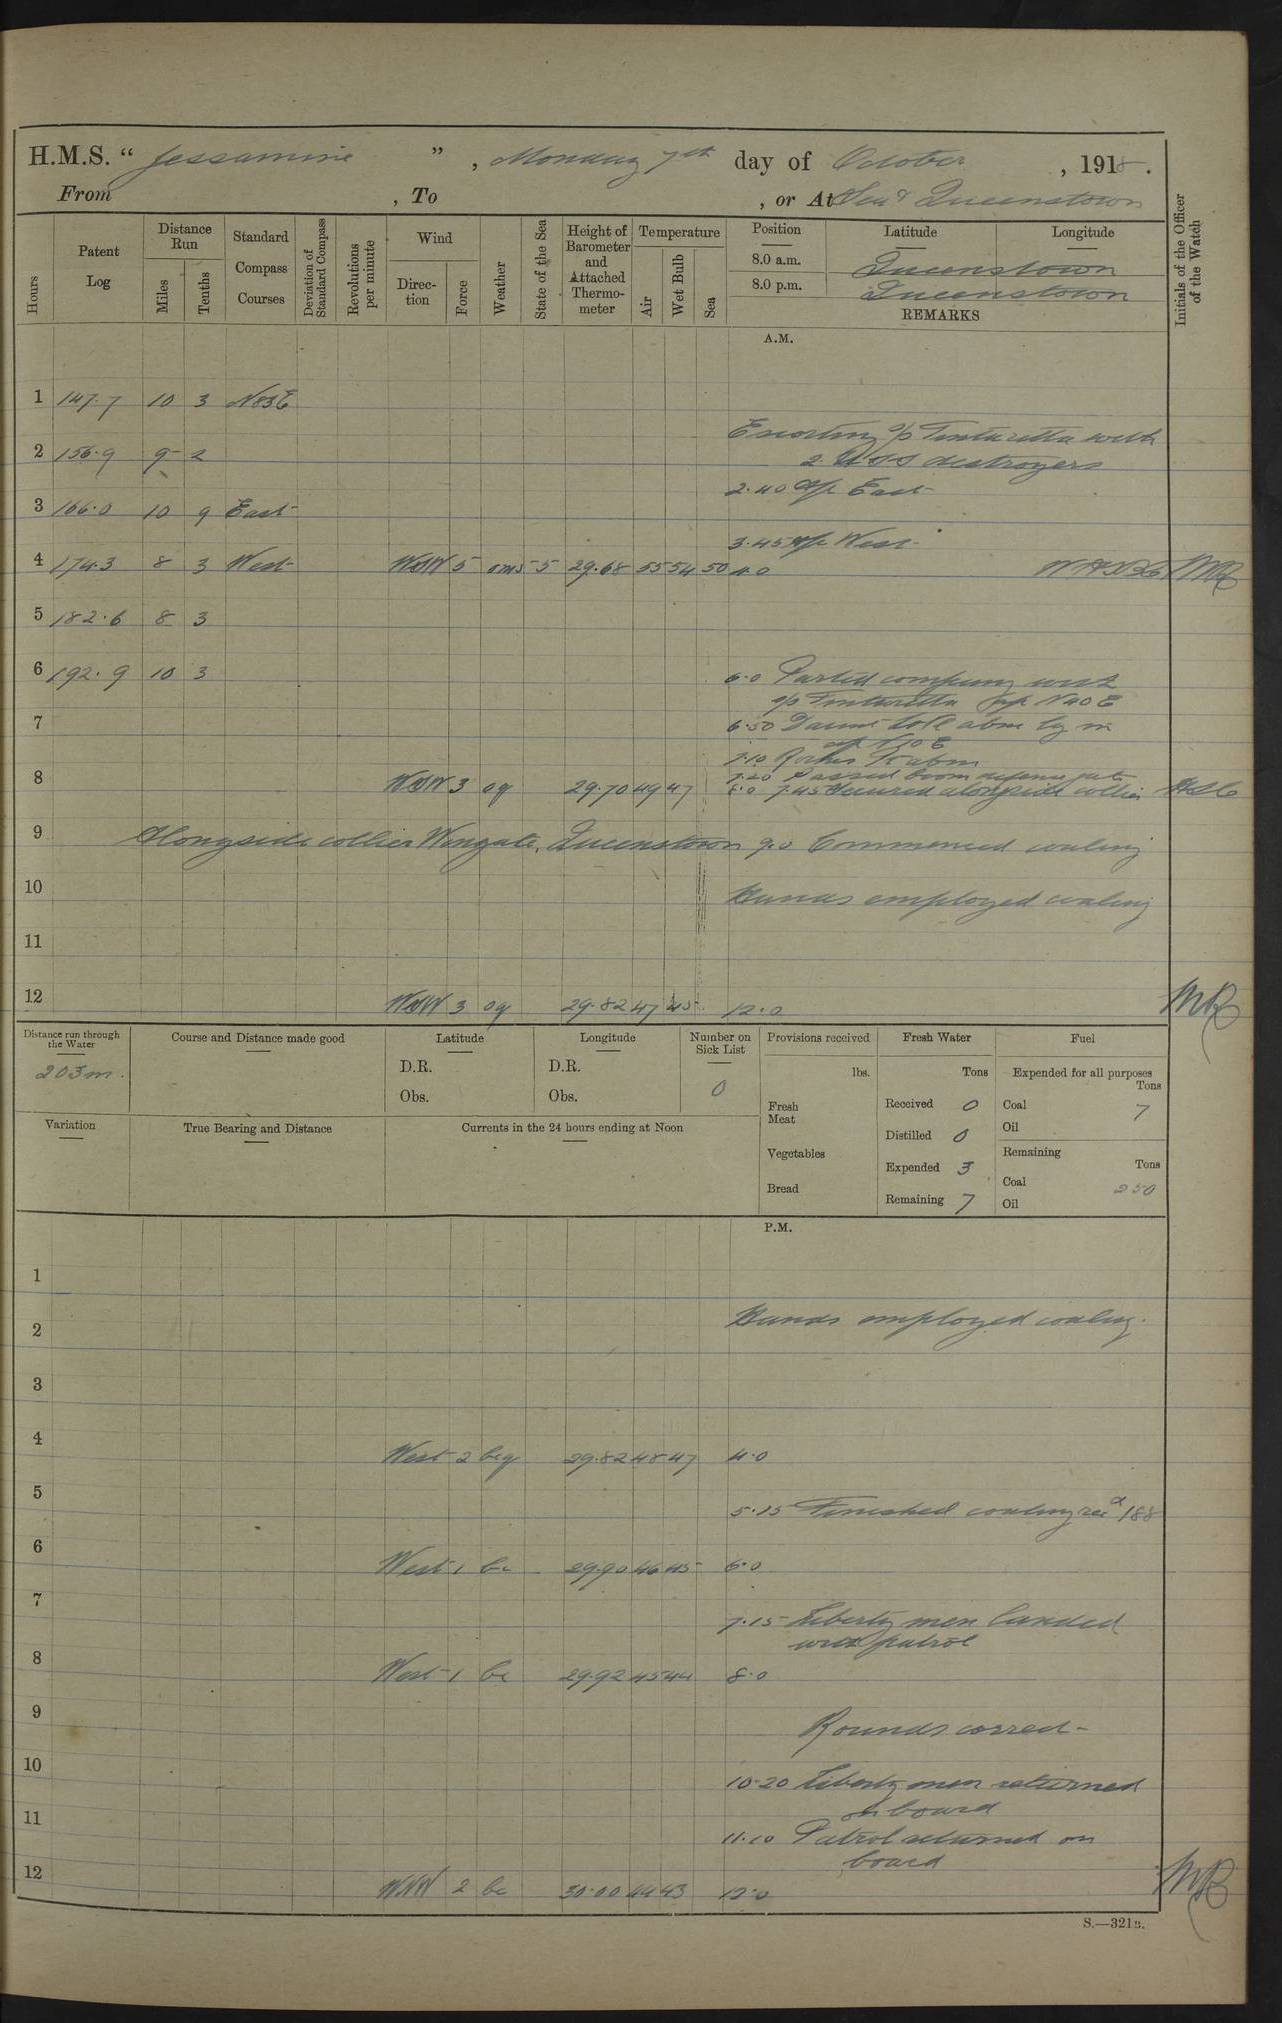 H.M.S. “ Jessamine ” , Monday 7th day of October , 1918 .
From , To , or At Sea & Queenstown
Hours
Patent Log
Distance Run
Miles
Tenths
Standard Compass Courses
Deviation of Standard Compass
Revolutions per minute
Wind
Direction
Force
Weather
State of the Sea
Height of Barometer and Attached Thermometer
Temperature
Air
Wet Bulb
Sea
Position Latitude Longitude
8.0 a.m. Queenstown
8.0 p.m. Queenstown
REMARKS
Initials of the Officer of the Watch
A.M.
1 147.7 10 3 N83E
Escorting s/s Tinturetta with
2 156.9 9 2
2 USS destroyers
2.40 a/c East
3 166.0 10 9 East
3.45 a/c West
4 174.3 8 3 West WSW 5 oms 5 29.68 55 54 50 4.0
5 182.6 8 3
6 192.9 10 3 6.0 Parted company with
s/s Tinturetta a/c N40E
7 6.50 Daunt Rock abm
7.10 Roches Pt abm
7.20 Passed boom defence gate
8 WSW 3 oq 29.70 49 47 8.0 7.45 Secured alongside collier
9 Alongside collier Wingate, Queenstown 9.0 Commenced coaling
10 Hands employed coaling
11
12 WSW 3 oq 29.82 47 45 12.0 MR
Distance run through the Water
203m.
Course and Distance made good
Latitude
D.R.
Obs.
Longitude
D.R.
Obs.
Number on Sick List
0
Provisions received
lbs.
Fresh Meat
Vegetables
Bread
Fresh Water
Tons
Received 0
Distilled 0
Expended 3
Remaining 7
Fuel
Expended for all purposes
Tons
Coal 7
Oil
Remaining
Tons
Coal 250
Oil
Variation
True Bearing and Distance
Currents in the 24 hours ending at Noon
P.M.
1
2 Hands employed coaling.
3
4 West 2 bcq 29.82 48 47 4.0
5 5.15 Finished coaling recd 188
6 West 1 bc 29.90 46 45 6.0
7 7.15 Liberty men landed
with patrol
8 West 1 bc 29.92 45 44 8.0
9 Rounds correct
10 10.20 Liberty men returned
on board
11 11.10 Patrol returned on
board
12 WNW 2 bc 30.00 44 43 12.0 MR
S.—321B.